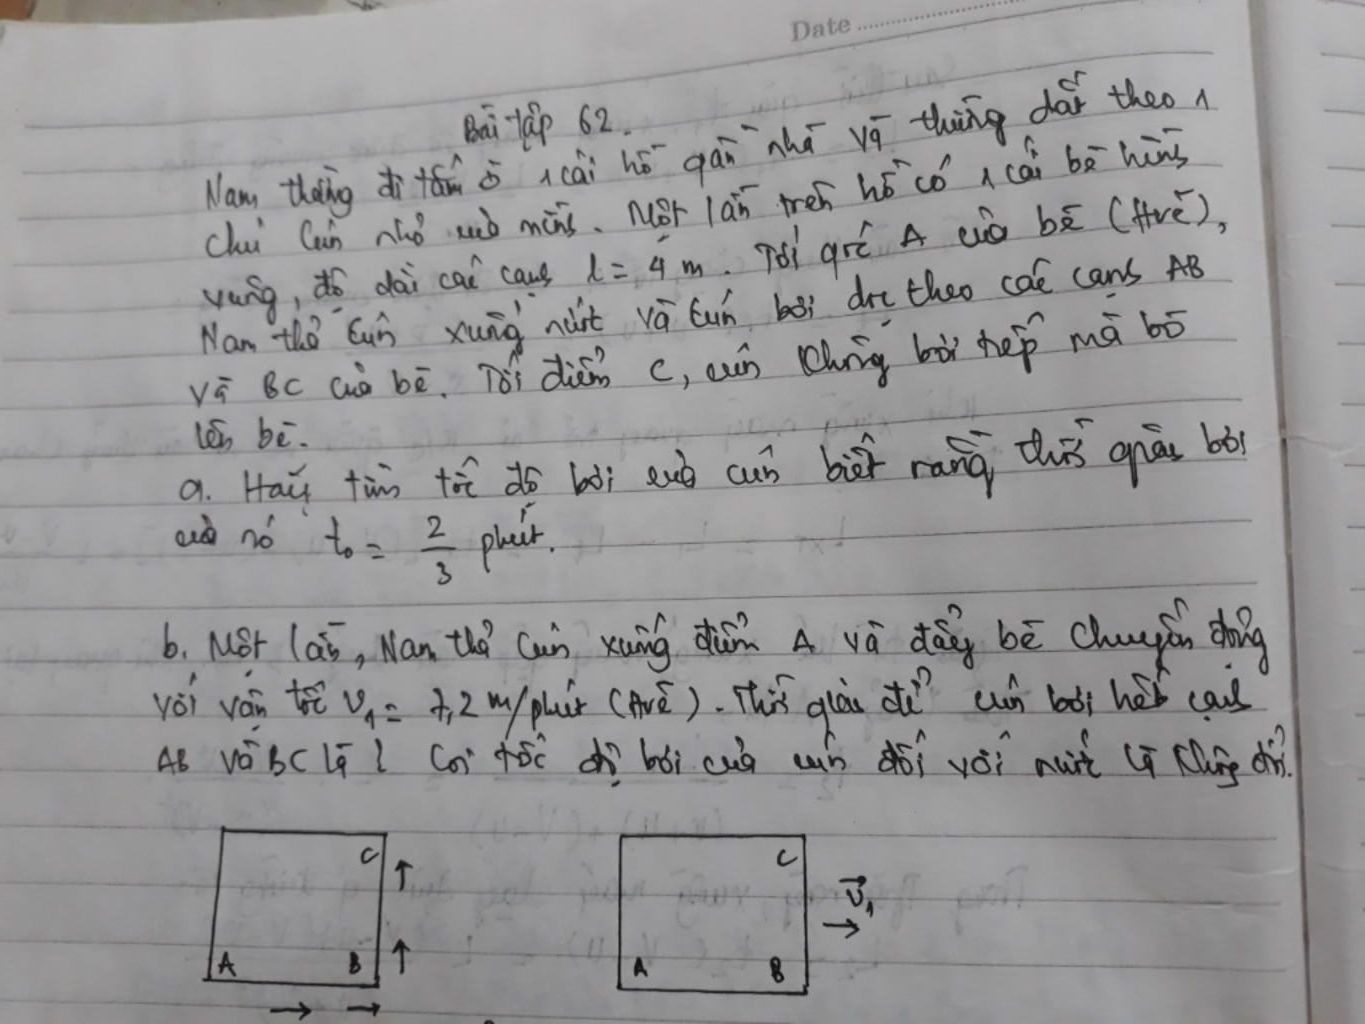 Date
Bài tập 62.
Nam thường đi tắm ở 1 cái hồ gần nhà và thường dắt theo 1
chú cún nhỏ của mình. Một lần trên hồ có 1 cái bè hình
vuông, độ dài các cạnh l = 4 m. Tới góc A của bè (H.vẽ),
Nam thả cún xuống nước và cún bơi dọc theo các cạnh AB
và BC của bè. Tới điểm C, cún không bơi tiếp mà bò
lên bè.
a. Hãy tìm tốc độ bơi của cún biết rằng thời gian bơi
của nó t₀ = 2/3 phút.
b. Một lần, Nam thả cún xuống điểm A và đẩy bè chuyển động
với vận tốc v₁ = 7,2 m/phút (H.vẽ). Thời gian để cún bơi hết cạnh
AB và BC là ? Coi tốc độ bơi của cún đối với nước là không đổi.
C ↑ C v⃗₁
→
A B ↑ A B
→ →